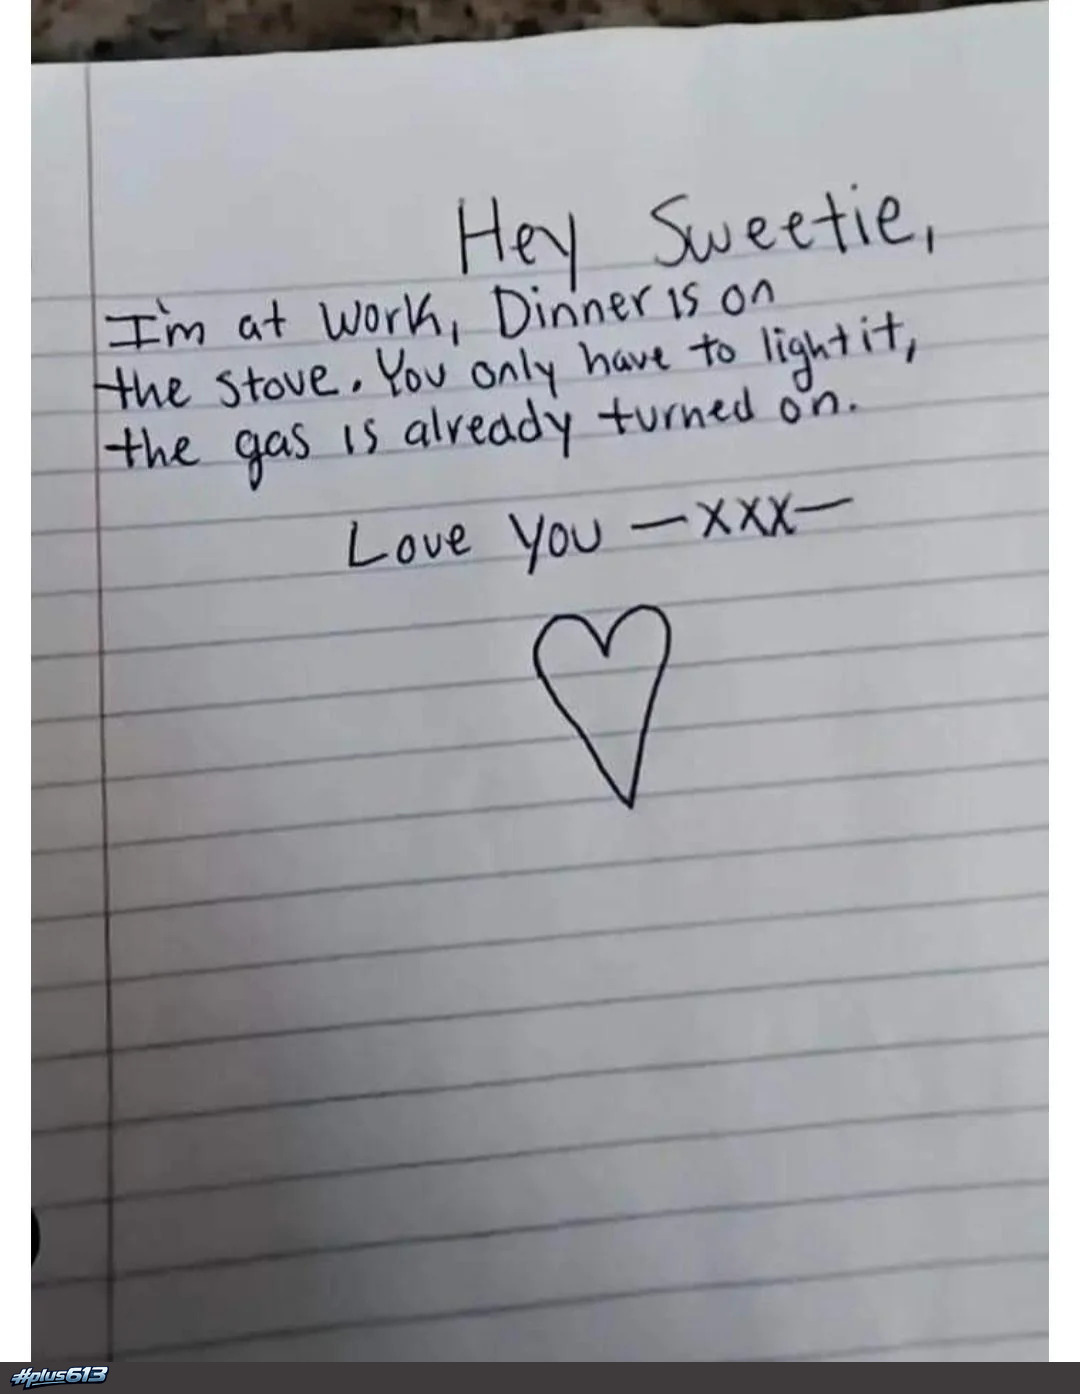 Hey Sweetie,
I'm at work, Dinner is on
the stove. You only have to light it,
the gas is already turned on.
Love You —xxx—
#plus613